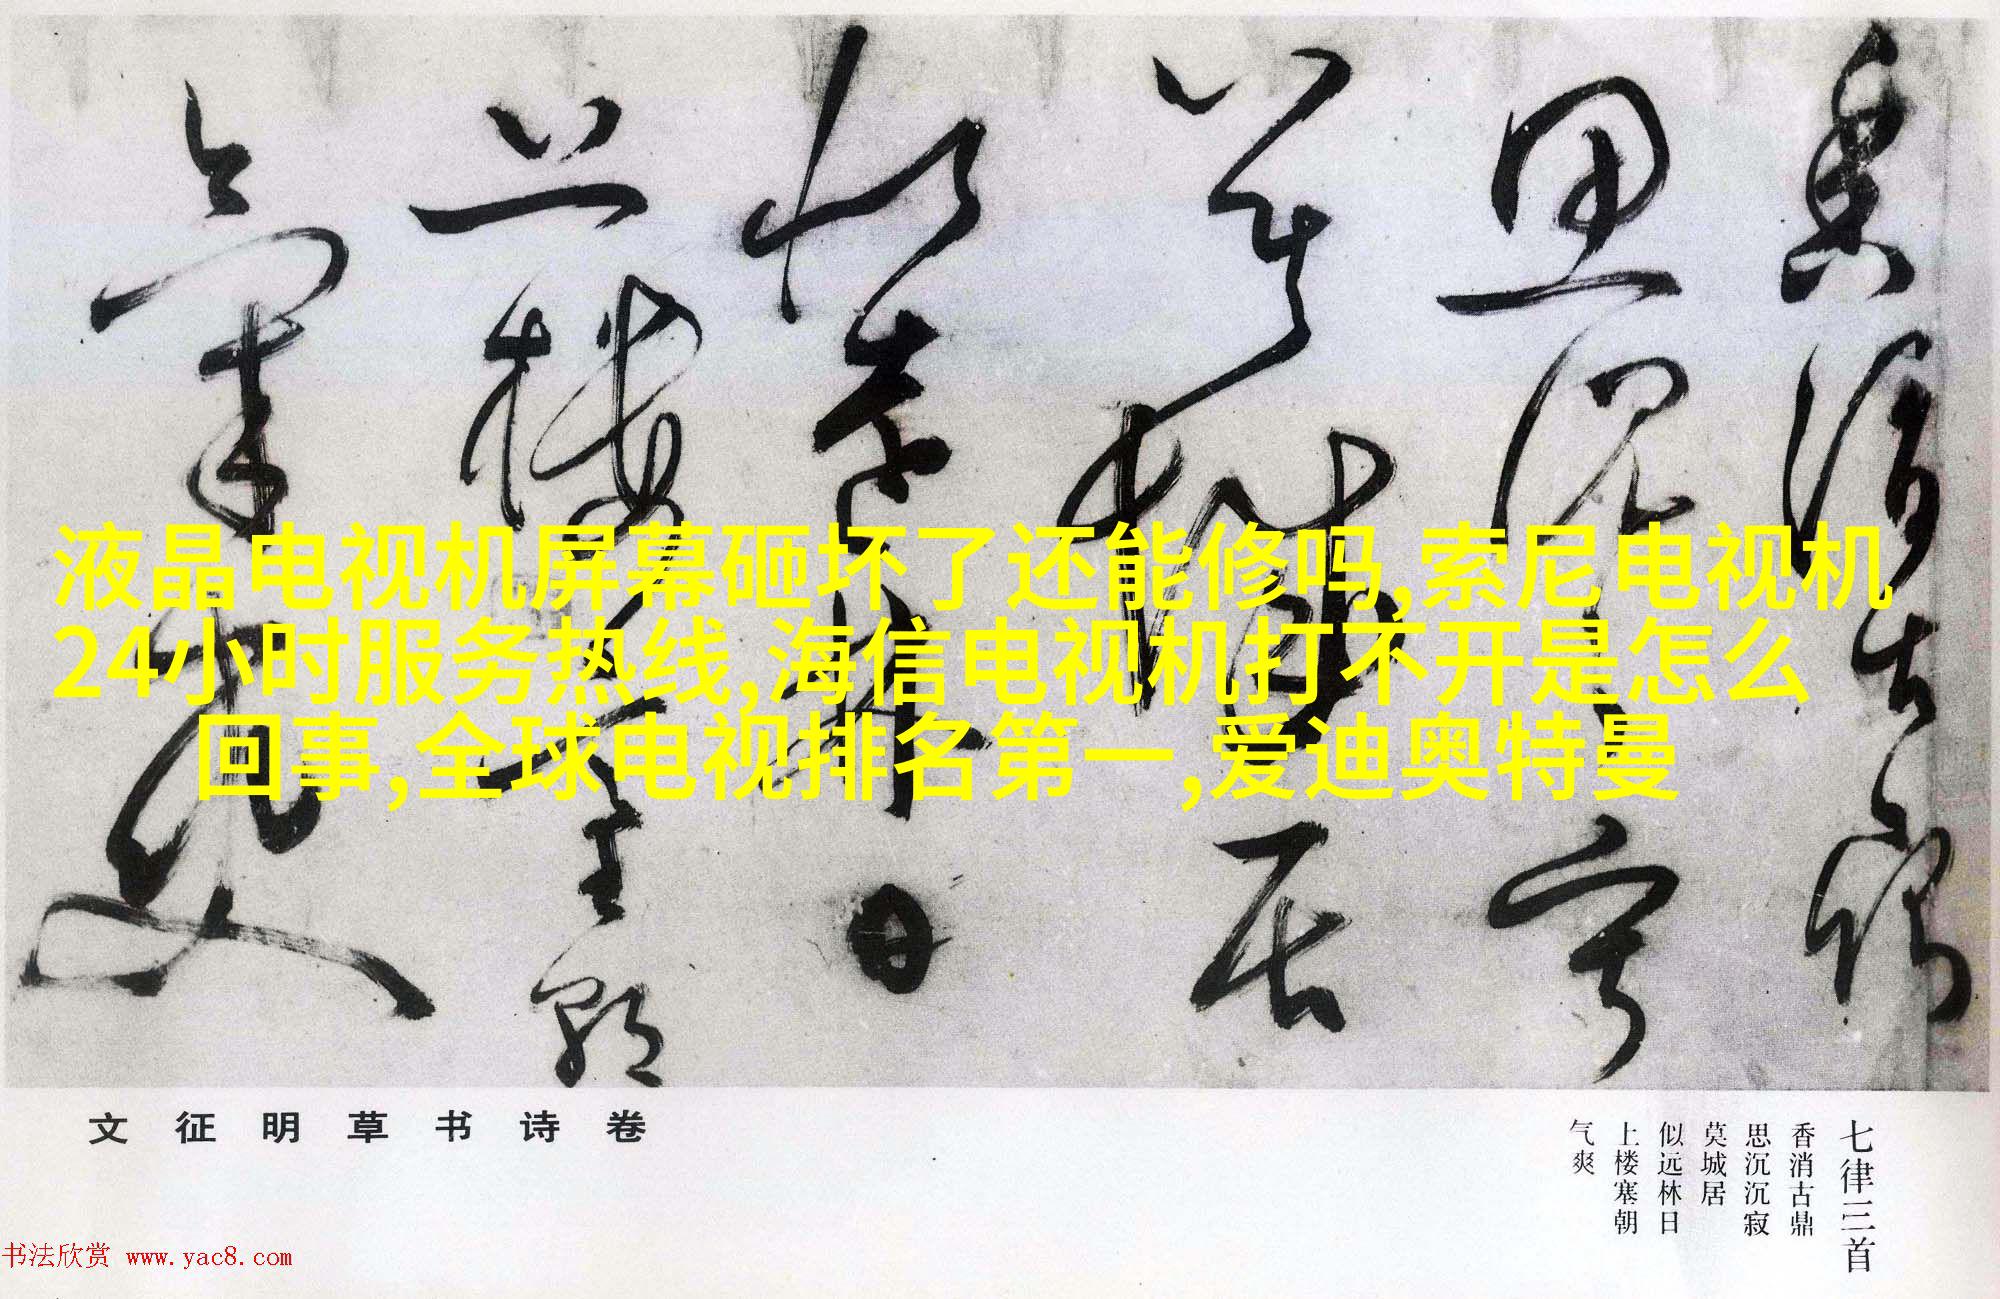 香消古鼎
思沉沉寂
莫城居
似远林日
上楼塞朝
气爽
液晶电视机屏幕砸坏了还能修吗,索尼电视机
24小时服务热线,海信电视机打不开是怎么
回事,全球电视排名第一,爱迪奥特曼
文征明草书诗卷
七律三首
香消古鼎
思沉沉寂
莫城居
似远林日
上楼塞朝
气爽
书法欣赏 www.yac8.com